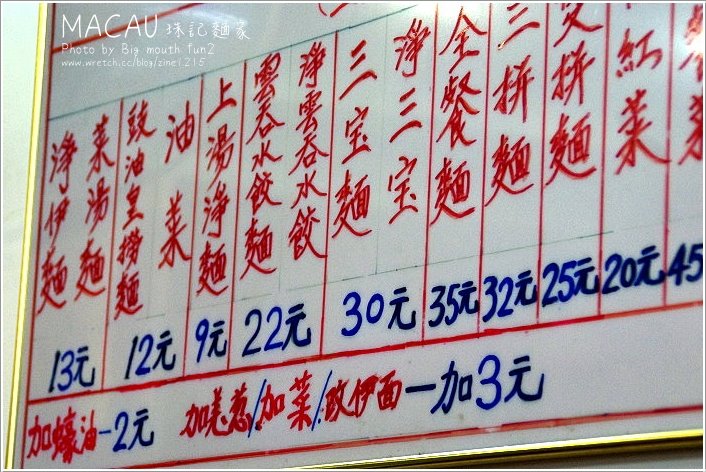 MACAU 珠記麵家
Photo by Big mouth fun2
www.wretch.cc/blog/zine1215
淨伊麵
菜湯麵
13元
豉油皇撈麵
油菜
12元
上湯淨麵
9元
雲吞水餃麵
淨雲吞水餃
22元
三宝麵
淨三宝
30元
全餐麵
35元
三拼麵
32元
拼麵
25元
紅菜
20元
菜
45
加蠔油-2元
加羌葱/加菜/改伊面-加3元